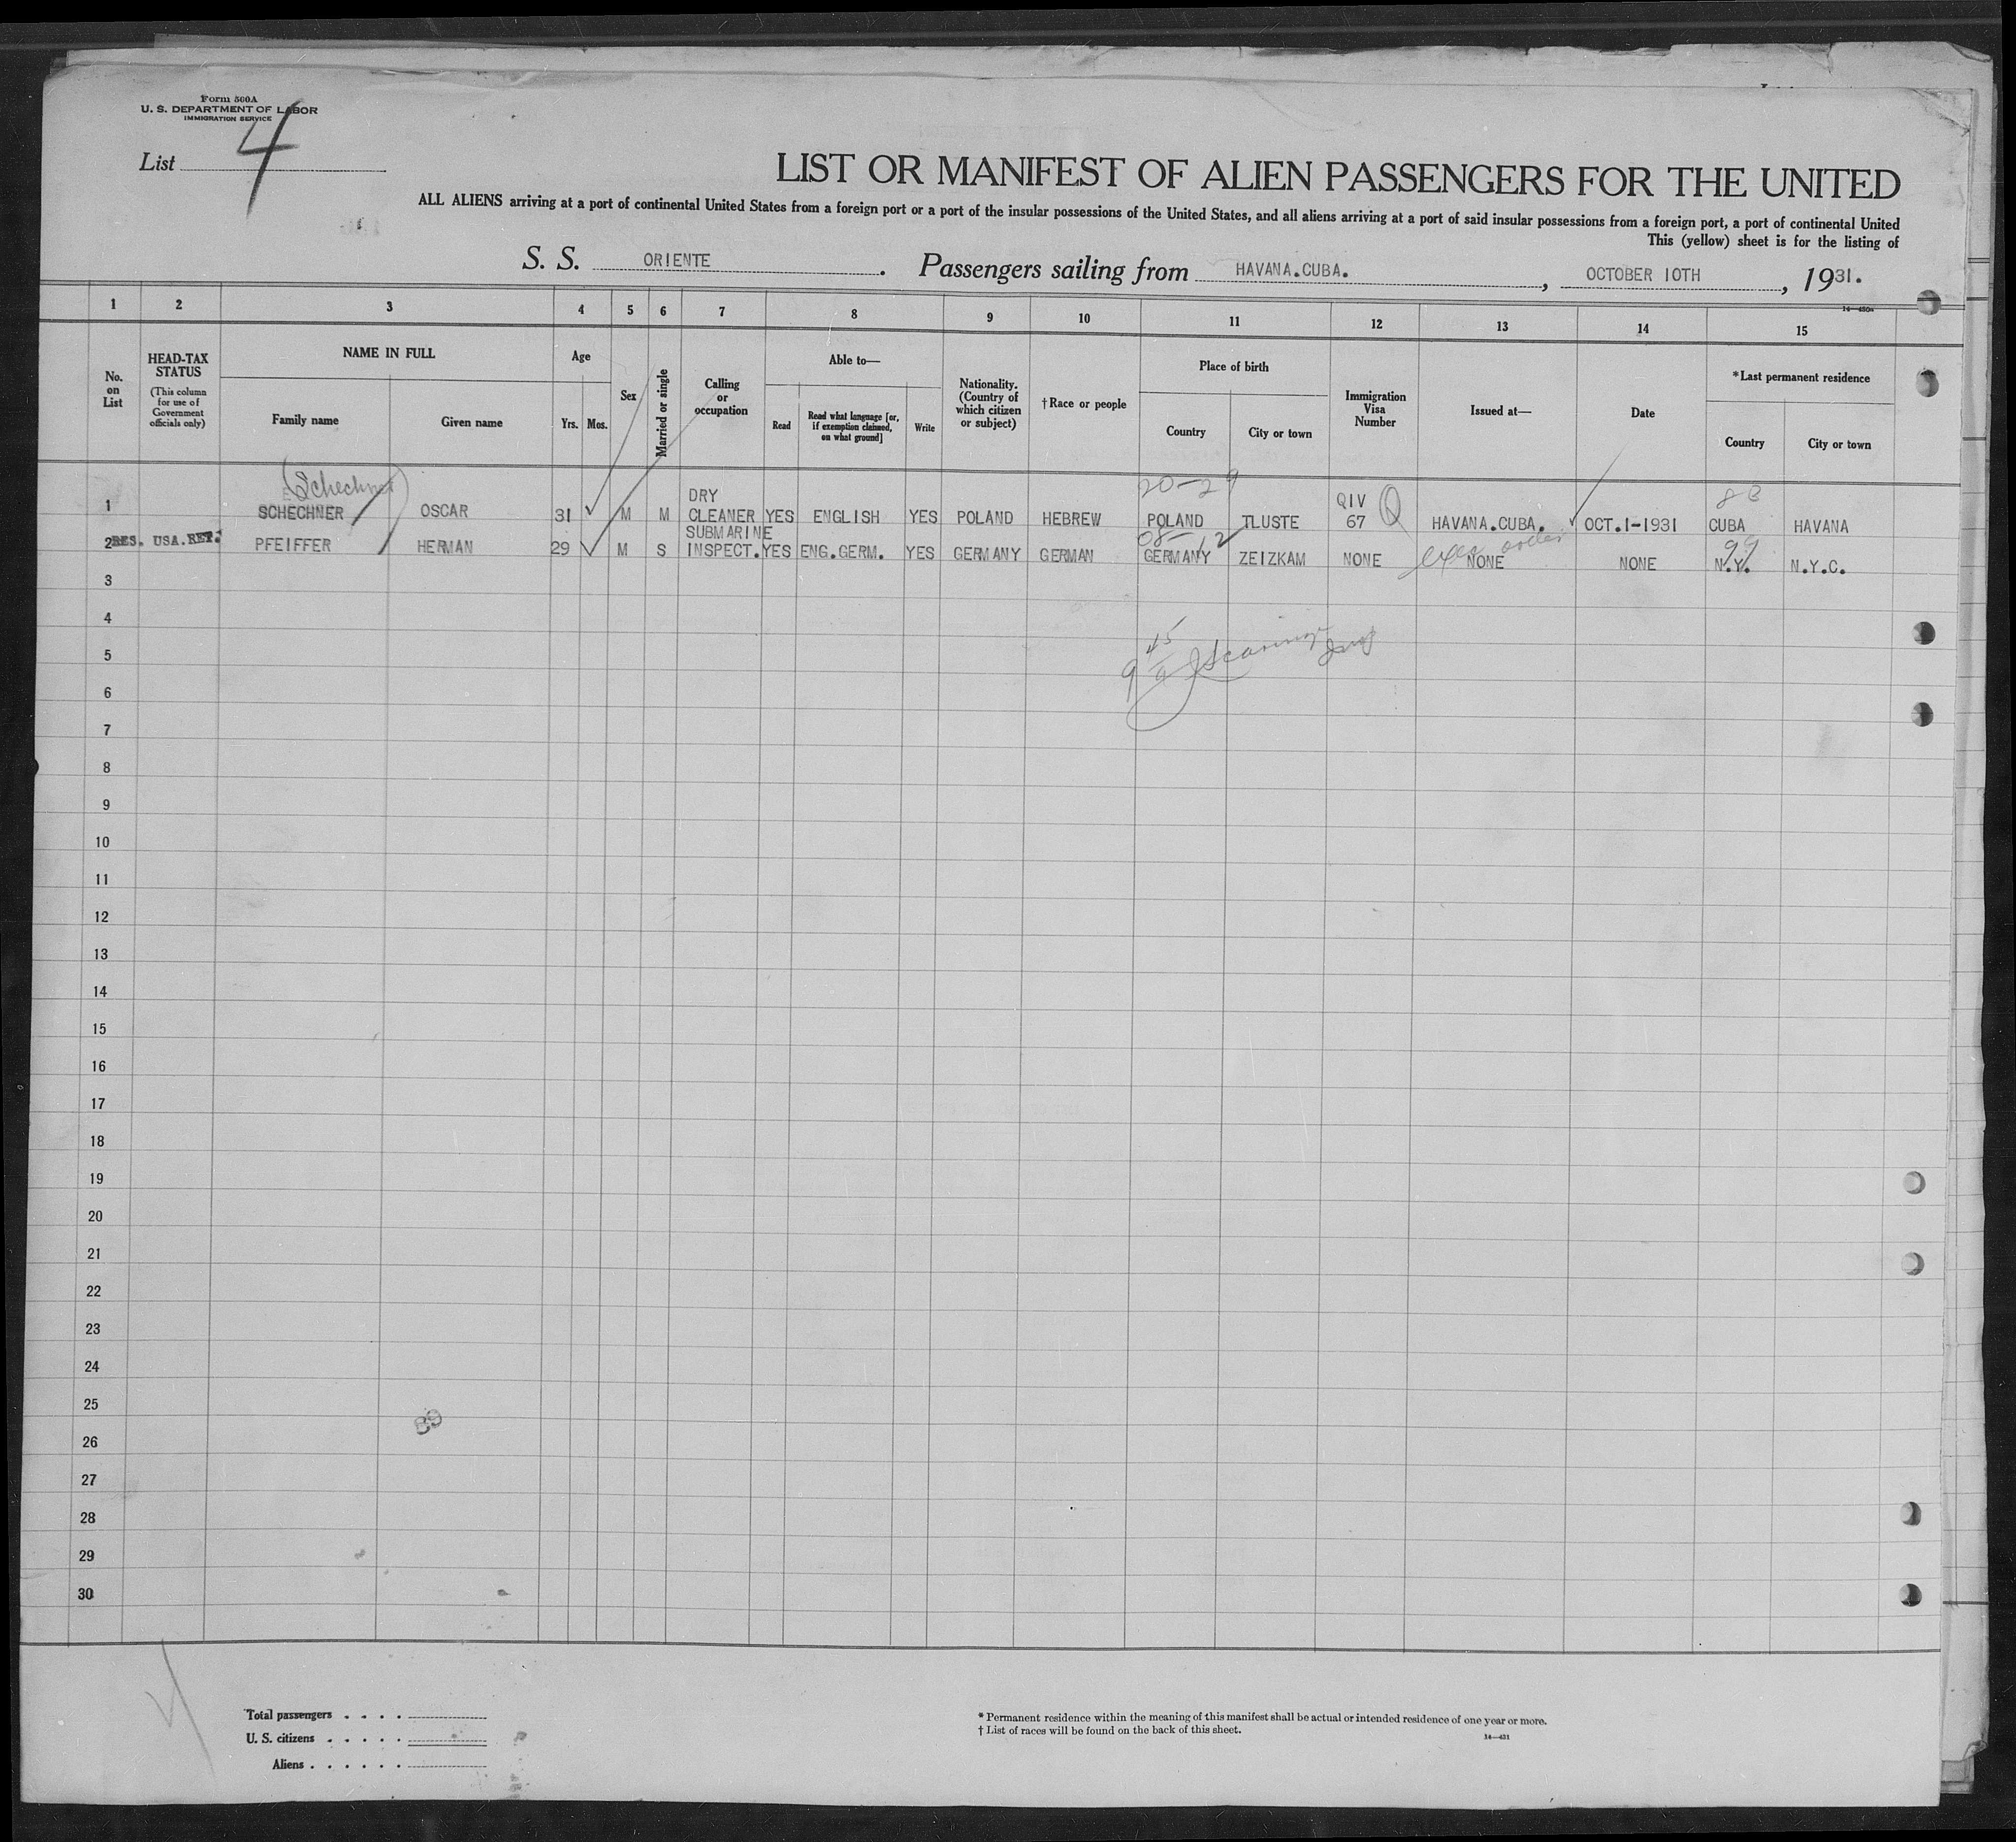 Form 500A
U. S. DEPARTMENT OF LABOR
IMMIGRATION SERVICE
List 4
LIST OR MANIFEST OF ALIEN PASSENGERS FOR THE UNITED
ALL ALIENS arriving at a port of continental United States from a foreign port or a port of the insular possessions of the United States, and all aliens arriving at a port of said insular possessions from a foreign port, a port of continental United
This (yellow) sheet is for the listing of
S. S. ORIENTE. Passengers sailing from HAVANA.CUBA., OCTOBER 10TH, 1931.
1 2 3 4 5 6 7 8 9 10 11 12 13 14 15
No. on List
HEAD-TAX STATUS
(This column for use of Government officials only)
NAME IN FULL
Family name
Given name
Age
Yrs. Mos.
Sex
Married or single
Calling or occupation
Able to—
Read
Read what language [or, if exemption claimed, on what ground]
Write
Nationality. (Country of which citizen or subject)
†Race or people
Place of birth
Country
City or town
Immigration Visa Number
Issued at—
Date
*Last permanent residence
Country
City or town
(Schechner)
20-29
8B
1 SCHECHNER OSCAR 31 M M DRY CLEANER YES ENGLISH YES POLAND HEBREW POLAND TLUSTE QIV 67 Q HAVANA.CUBA. OCT.1-1931 CUBA HAVANA
08-12
exec order
99
2 RES. USA.RET. PFEIFFER HERMAN 29 M S SUBMARINE INSPECT. YES ENG.GERM. YES GERMANY GERMAN GERMANY ZEIZKAM NONE NONE NONE N.Y. N.Y.C.
3
4
5
9 45
6
7
8
9
10
11
12
13
14
15
16
17
18
19
20
21
22
23
24
25
89
26
27
28
29
30
Total passengers . . . .
U. S. citizens . . . . .
Aliens . . . . . .
* Permanent residence within the meaning of this manifest shall be actual or intended residence of one year or more.
† List of races will be found on the back of this sheet.
14—431